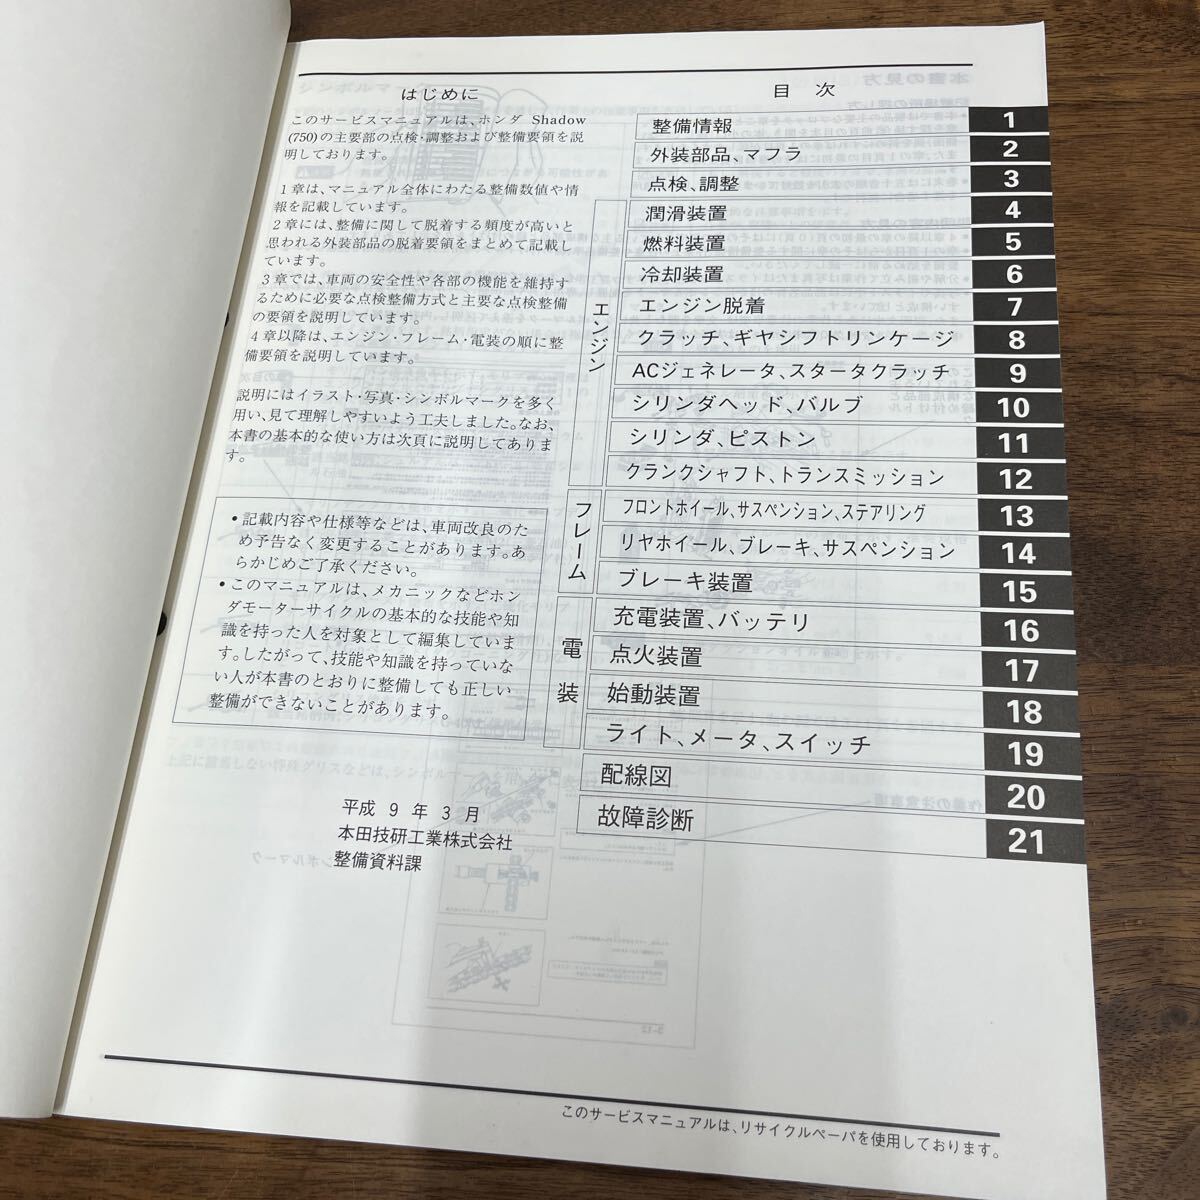 はじめに
このサービスマニュアルは、ホンダ Shadow
(750)の主要部の点検・調整および整備要領を説
明しております。
1章は、マニュアル全体にわたる整備数値や情
報を記載しています。
2章には、整備に関して脱着する頻度が高いと
思われる外装部品の脱着要領をまとめて記載し
ています。
3章では、車両の安全性や各部の機能を維持す
るために必要な点検整備方式と主要な点検整備
の要領を説明しています。
4章以降は、エンジン・フレーム・電装の順に整
備要領を説明しています。
説明にはイラスト・写真・シンボルマークを多く
用い、見て理解しやすいよう工夫しました。なお、
本書の基本的な使い方は次頁に説明してありま
す。
• 記載内容や仕様等などは、車両改良のた
め予告なく変更することがあります。あ
らかじめご了承ください。
• このマニュアルは、メカニックなどホン
ダモーターサイクルの基本的な技能や知
識を持った人を対象として編集していま
す。したがって、技能や知識を持っていな
い人が本書のとおりに整備しても正しい
整備ができないことがあります。
平成 9 年 3 月
本田技研工業株式会社
整備資料課
目 次
整備情報 1
外装部品、マフラ 2
点検、調整 3
エンジン
潤滑装置 4
燃料装置 5
冷却装置 6
エンジン脱着 7
クラッチ、ギヤシフトリンケージ 8
ACジェネレータ、スタータクラッチ 9
シリンダヘッド、バルブ 10
シリンダ、ピストン 11
クランクシャフト、トランスミッション 12
フレーム
フロントホイール、サスペンション、ステアリング 13
リヤホイール、ブレーキ、サスペンション 14
ブレーキ装置 15
電装
充電装置、バッテリ 16
点火装置 17
始動装置 18
ライト、メータ、スイッチ 19
配線図 20
故障診断 21
このサービスマニュアルは、リサイクルペーパを使用しております。